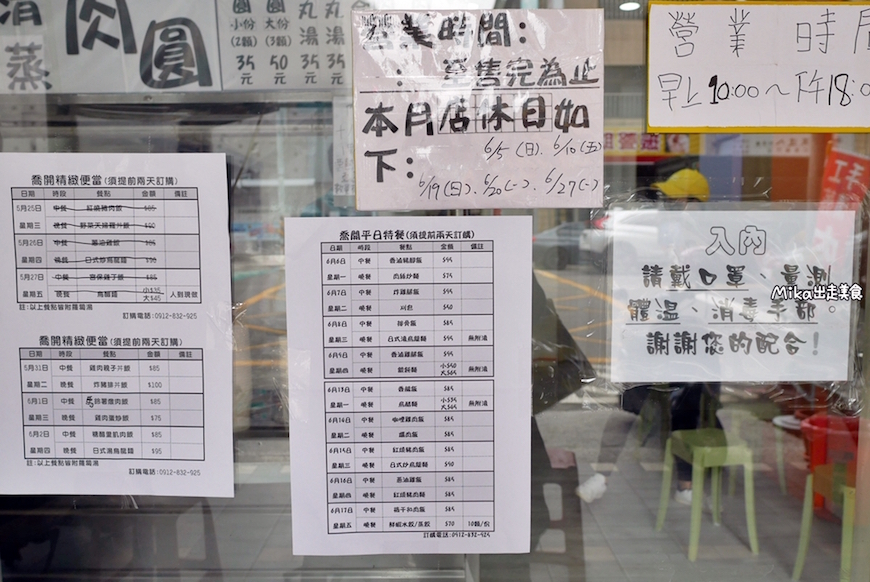 肉圓
蒸
圓 圓 丸 丸
小份 大份 湯 湯
(2顆) (3顆)
35元 50元 35元 35元
營業時間:
: 至售完為止
本月店休日如
下: 6/5(日)、6/10(五)
6/19(日)、6/20(一)、6/27(一)
營業時
早上10:00~下午18:0
喬開精緻便當(須提前兩天訂購)
日期 時段 餐點 金額 備註
5月25日 中餐 $85
星期三 晚餐 $90
5月26日 中餐 $95
星期四 晚餐 日式炒烏龍麵 $90
5月27日 中餐 宮保雞丁飯 $85
星期五 晚餐 烏醋麵 小$35 大$45 人到現做
註:以上餐點皆附蘿蔔湯
訂購電話:0912-832-925
喬開精緻便當(須提前兩天訂購)
日期 時段 餐點 金額 備註
5月31日 中餐 雞肉親子丼飯 $85
星期二 晚餐 炸豬排丼飯 $100
6月1日 中餐 蒜薯燉肉飯 $85
星期三 晚餐 雞肉蛋炒飯 $75
6月2日 中餐 糖醋里肌肉飯 $85
星期四 晚餐 日式湯烏龍麵 $95
註:以上餐點皆附蘿蔔湯
訂購電話:0912-832-925
喬開平日特餐(須提前兩天訂購)
日期 時段 餐點 金額 備註
6月6日 中餐 香滷豬腳飯
星期一 晚餐 $75
6月7日 中餐 炸雞腿飯
星期二 晚餐 刈包
6月8日 中餐 排骨飯
星期三 晚餐 日式湯烏龍麵 無附湯
6月9日 中餐 香滷雞腿飯
星期四 晚餐 餛飩麵 無附湯
6月13日 中餐 香腸飯
星期一 晚餐 烏醋麵 無附湯
6月14日 中餐 咖哩雞肉飯
星期二 晚餐 滷肉飯
6月15日 中餐 紅燒豬肉飯
星期三 晚餐 日式炒烏龍麵 $90
6月16日 中餐 蔥油雞飯
星期四 晚餐 紅燒豬肉麵
6月17日 中餐 梅干扣肉飯
星期五 晚餐 鮮蝦水餃/蒸餃 $70 10顆/份
訂購電話:0912-832-925
入內
請戴口罩、量測
體溫、消毒手部。
謝謝您的配合!
Mika出走美食
手工